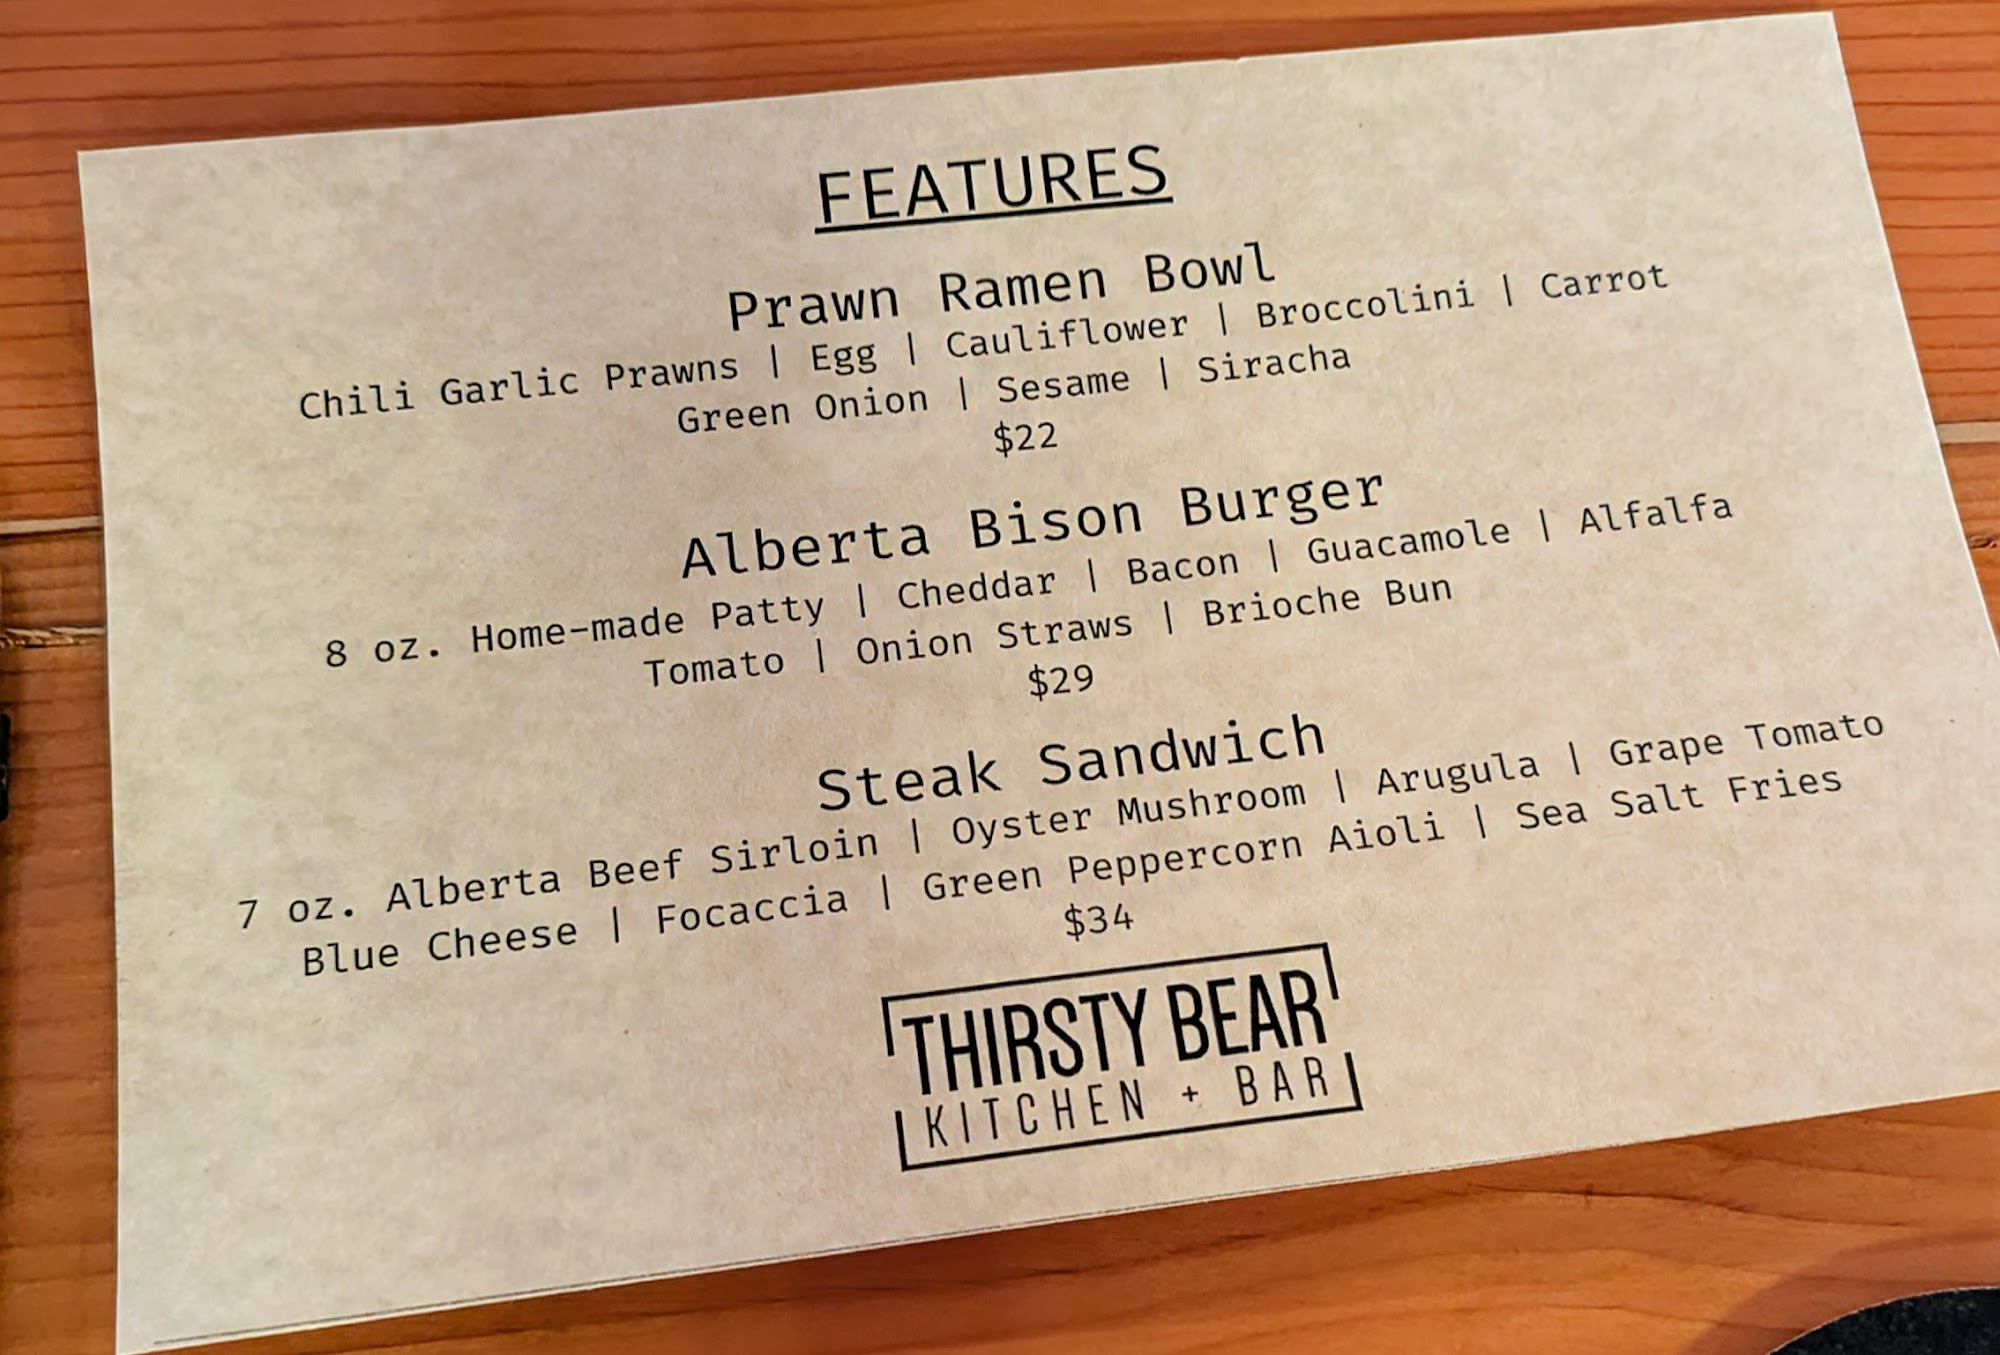 FEATURES
Prawn Ramen Bowl
Chili Garlic Prawns | Egg | Cauliflower | Broccolini | Carrot
Green Onion | Sesame | Siracha
$22
Alberta Bison Burger
8 oz. Home-made Patty | Cheddar | Bacon | Guacamole | Alfalfa
Tomato | Onion Straws | Brioche Bun
$29
Steak Sandwich
7 oz. Alberta Beef Sirloin | Oyster Mushroom | Arugula | Grape Tomato
Blue Cheese | Focaccia | Green Peppercorn Aioli | Sea Salt Fries
$34
THIRSTY BEAR
KITCHEN + BAR